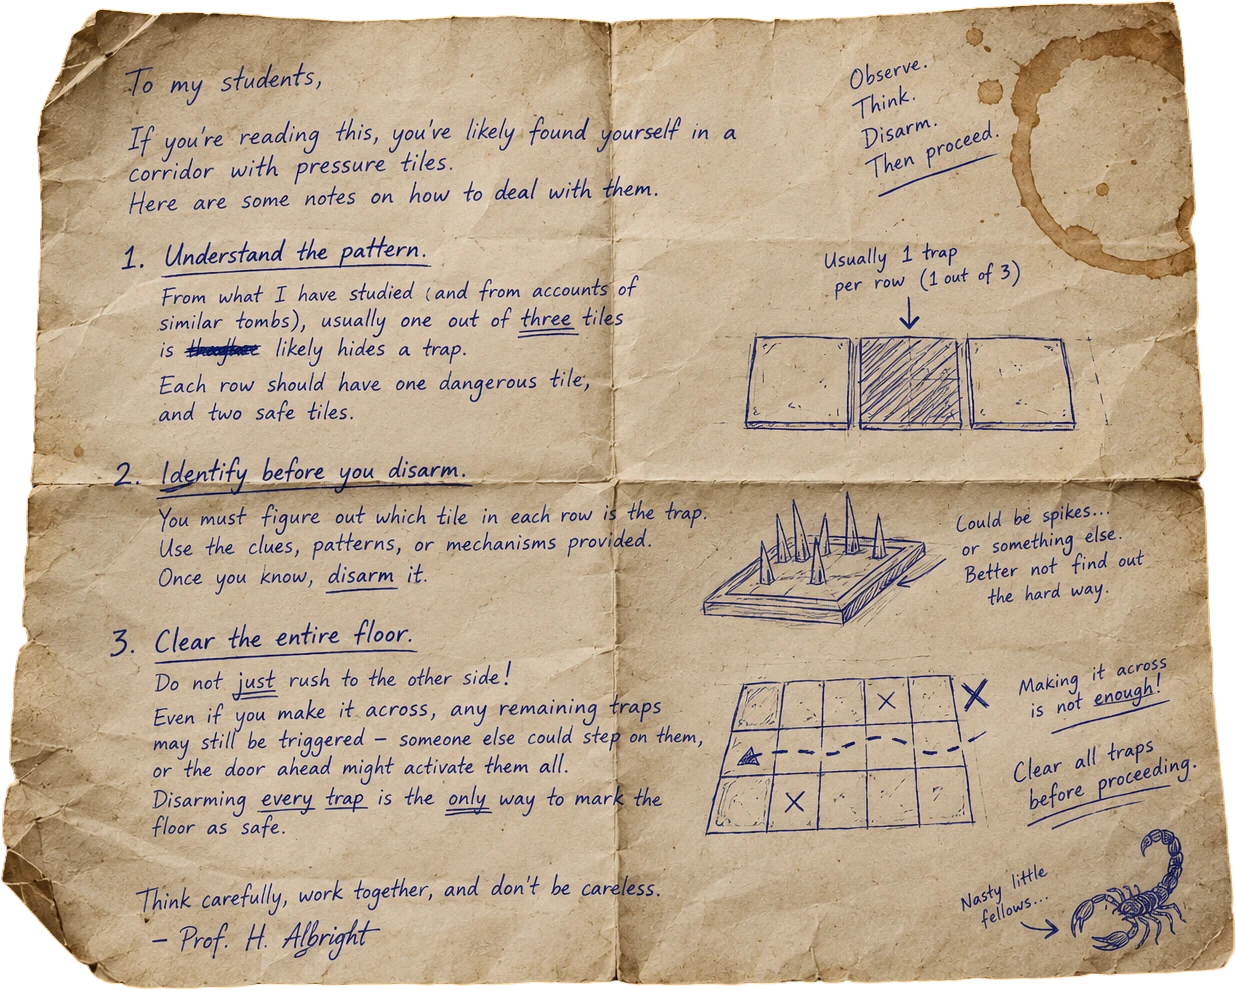 To my students,
If you're reading this, you've likely found yourself in a
corridor with pressure tiles.
Here are some notes on how to deal with them.
Observe.
Think.
Disarm.
Then proceed.
1. Understand the pattern.
From what I have studied (and from accounts of
similar tombs), usually one out of three tiles
is likely hides a trap.
Each row should have one dangerous tile,
and two safe tiles.
Usually 1 trap
per row (1 out of 3)
2. Identify before you disarm.
You must figure out which tile in each row is the trap.
Use the clues, patterns, or mechanisms provided.
Once you know, disarm it.
Could be spikes...
or something else.
Better not find out
the hard way.
3. Clear the entire floor.
Do not just rush to the other side!
Even if you make it across, any remaining traps
may still be triggered – someone else could step on them,
or the door ahead might activate them all.
Disarming every trap is the only way to mark the
floor as safe.
Making it across
is not enough!
Clear all traps
before proceeding.
Think carefully, work together, and don't be careless.
– Prof. H. Albright
Nasty little
fellows...